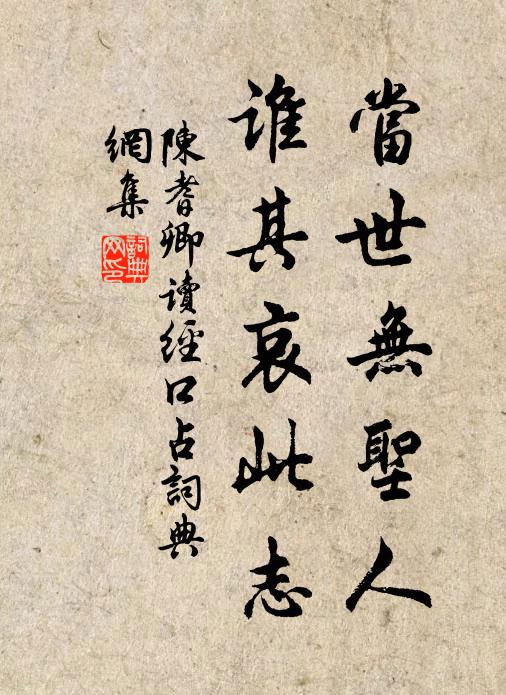 當世無聖人
誰其哀此志
陳耆卿讀經口占詞典
網集
詞典
网印